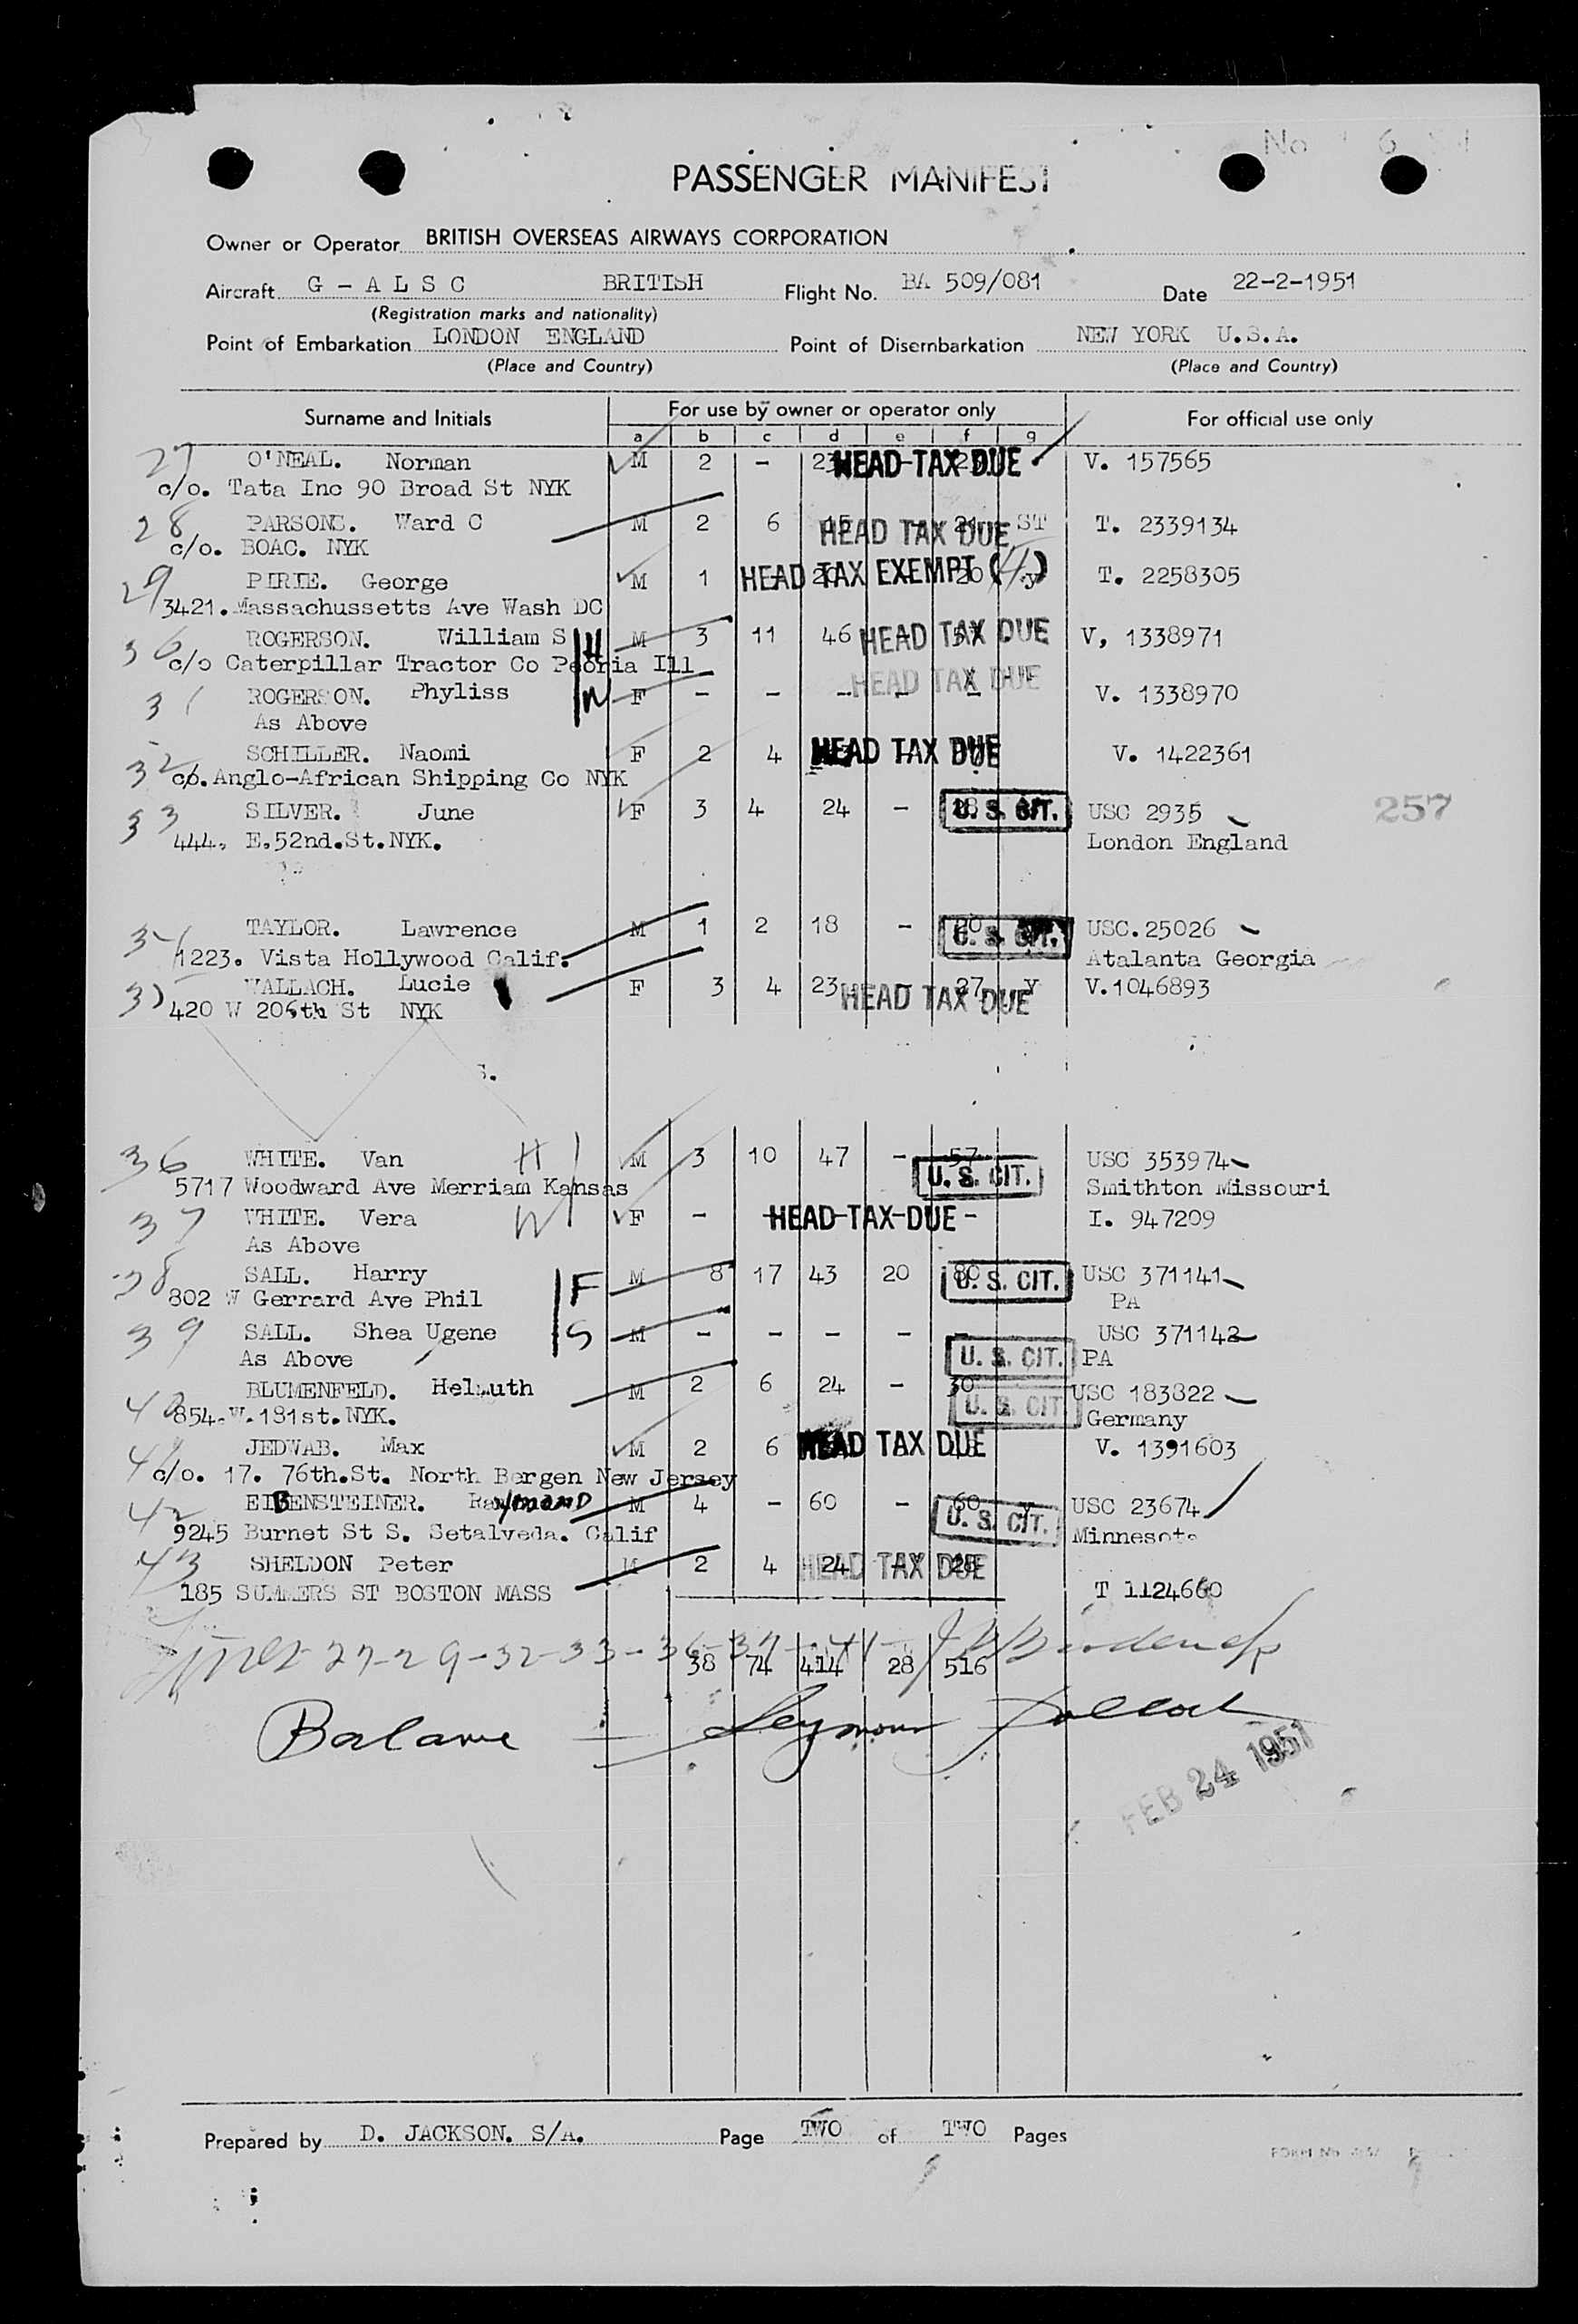 PASSENGER MANIFEST
Owner or Operator BRITISH OVERSEAS AIRWAYS CORPORATION
Aircraft G - A L S C BRITISH Flight No. BA 509/081 Date 22-2-1951
(Registration marks and nationality)
Point of Embarkation LONDON ENGLAND Point of Disembarkation NEW YORK U.S.A.
(Place and Country) (Place and Country)
Surname and Initials For use by owner or operator only For official use only
a b c d e f g
27 O'NEAL. Norman M 2 - HEAD TAX DUE V. 157565
c/o. Tata Inc 90 Broad St NYK
28 PARSONS. Ward C M 2 6 HEAD TAX DUE ST T. 2339134
c/o. BOAC. NYK
29 PIRIE. George M 1 HEAD TAX EXEMPT (4) y T. 2258305
3421. Massachussetts Ave Wash DC
30 ROGERSON. William S H M 3 11 46 HEAD TAX DUE V, 1338971
c/o Caterpillar Tractor Co Peoria Ill
31 ROGERSON. Phyliss W F - - - HEAD TAX DUE V. 1338970
As Above
32 SCHILLER. Naomi F 2 4 HEAD TAX DUE V. 1422361
c/o. Anglo-African Shipping Co NYK
33 SILVER. June F 3 4 24 - U. S. CIT. USC 2935 257
444. E.52nd.St.NYK. London England
34 TAYLOR. Lawrence M 1 2 18 - 20 U. S. CIT. USC.25026
1223. Vista Hollywood Calif. Atalanta Georgia
35 WALLACH. Lucie F 3 4 23 - 27 y HEAD TAX DUE V.1046893
420 W 206th St NYK
36 WHITE. Van H M 3 10 47 - 57 U. S. CIT. USC 353974
5717 Woodward Ave Merriam Kansas Smithton Missouri
37 WHITE. Vera W F - HEAD TAX DUE - I. 947209
As Above
38 SALL. Harry F M 8 17 43 20 80 U. S. CIT. USC 371141
802 W Gerrard Ave Phil PA
39 SALL. Shea Ugene S M - - - - - USC 371142
As Above U. S. CIT. PA
40 BLUMENFELD. Helmuth M 2 6 24 - 30 U. S. CIT USC 183822
854.W.181st.NYK. Germany
41 JEDWAB. Max M 2 6 HEAD TAX DUE V. 1391603
c/o. 17. 76th.St. North Bergen New Jersey
42 EIBENSTEINER. RaymonD M 4 - 60 - 60 y U. S. CIT. USC 23674
9245 Burnet St S. Setalveda. Calif Minnesota
43 SHELDON Peter M 2 4 24 - 28 HEAD TAX DUE
185 SUMMERS ST BOSTON MASS T 1124660
27-29-32-33-36-37-41
38 74 414 28 516
Balance Seymour Pollock
FEB 24 1951
Prepared by D. JACKSON. S/A. Page TWO of TWO Pages